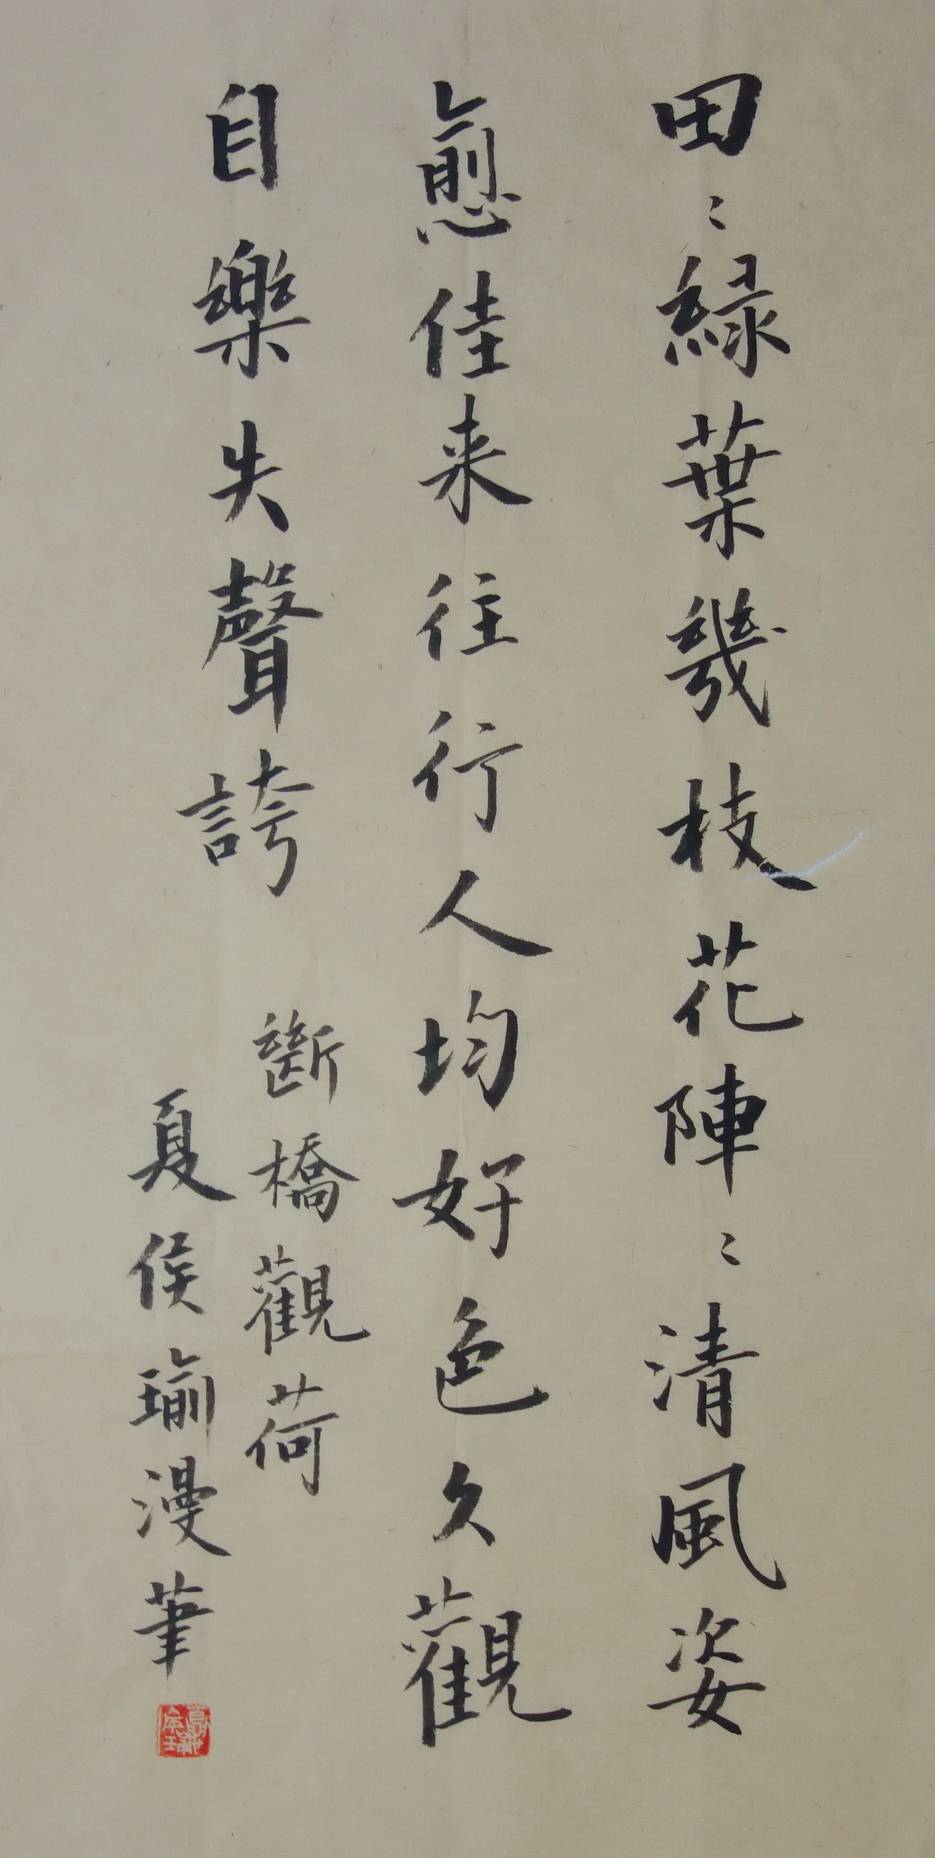 田〻緑葉幾枝花陣〻清風姿
愈佳来往行人均好色久觀
自樂失聲誇
斷橋觀荷
夏侯瑜漫筆